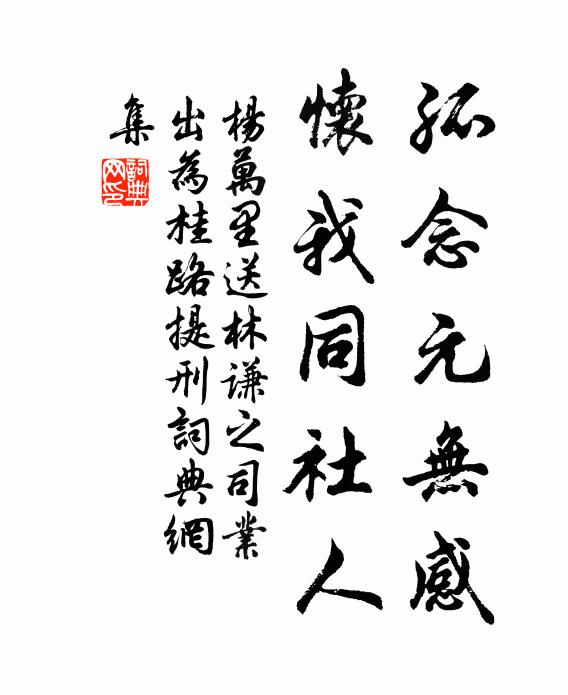 孤念元無感
懷我同社人
楊萬里送林謙之司業
出為桂路提刑詞典網
集
詞典
网印